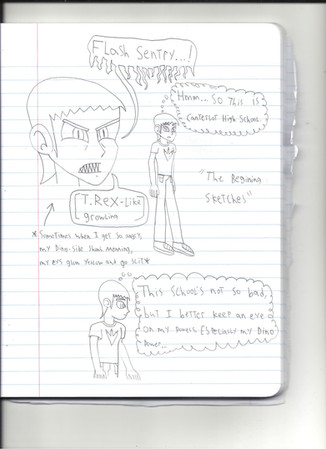 Flash Sentry...!
Hmm... So this is
Canterlot High School.
"The Begining
Sketches"
[T.Rex-Like
growling
*Sometimes when I get so angry,
my Dino-side
my eyes glow yellow and go
This school's not so bad,
but I better keep an eye
on my powers Especially my Dino
Power...